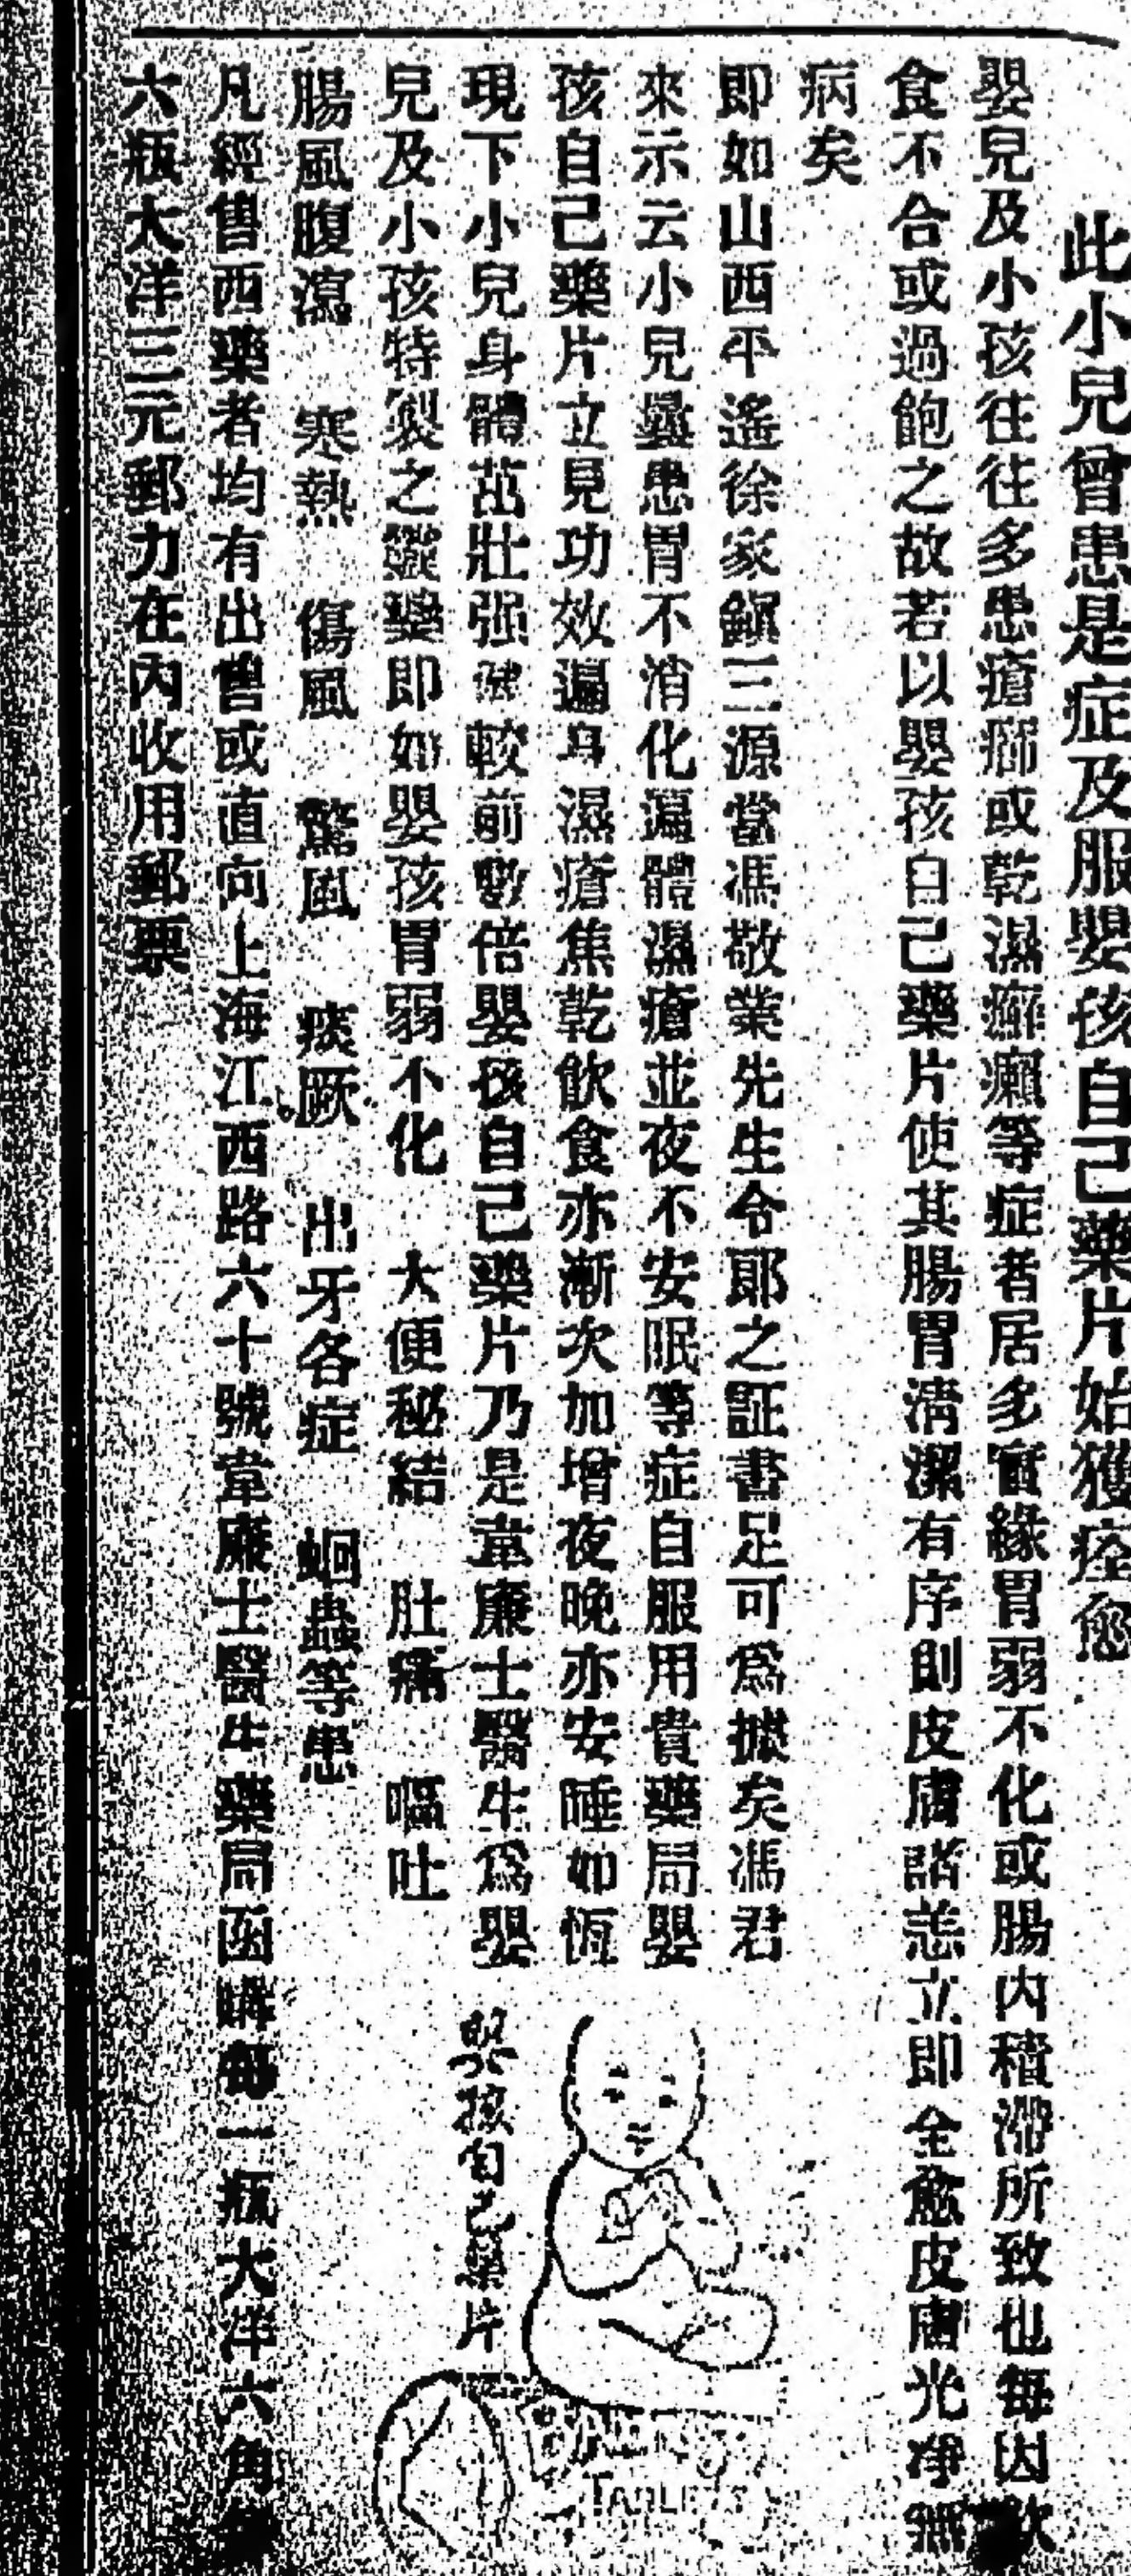 此小兒曾患是症及服嬰孩自己藥片始獲痊愈
嬰兒及小孩往往多患瘡癤或乾濕癬癩等症者居多實緣胃弱不化或腸內積滯所致也每因飲
食不合或過飽之故若以嬰孩自己藥片使其腸胃清潔有序則皮膚諸恙立即全愈皮膚光淨無
病矣
即如山西平遙徐家鎮三源當馮敬業先生令郎之証書足可爲據矣馮君
來示云小兒曩患胃不消化遍體濕瘡並夜不安眠等症自服用貴藥局嬰
孩自己藥片立見功效遍身濕瘡焦乾飲食亦漸次加增夜晚亦安睡如恆
現下小兒身體茁壯强健較前數倍嬰孩自己藥片乃是韋廉士醫生爲嬰
兒及小孩特製之靈藥即如嬰孩胃弱不化 大便秘結 肚痛 嘔吐
腸風腹瀉 寒熱 傷風 驚風 痰厥 出牙各症 蛔蟲等患
凡經售西藥者均有出售或直向上海江西路六十號韋廉士醫生藥局函購每一瓶大洋六角每
六瓶大洋三元郵力在內收用郵票
嬰孩自己藥片
TABLETS